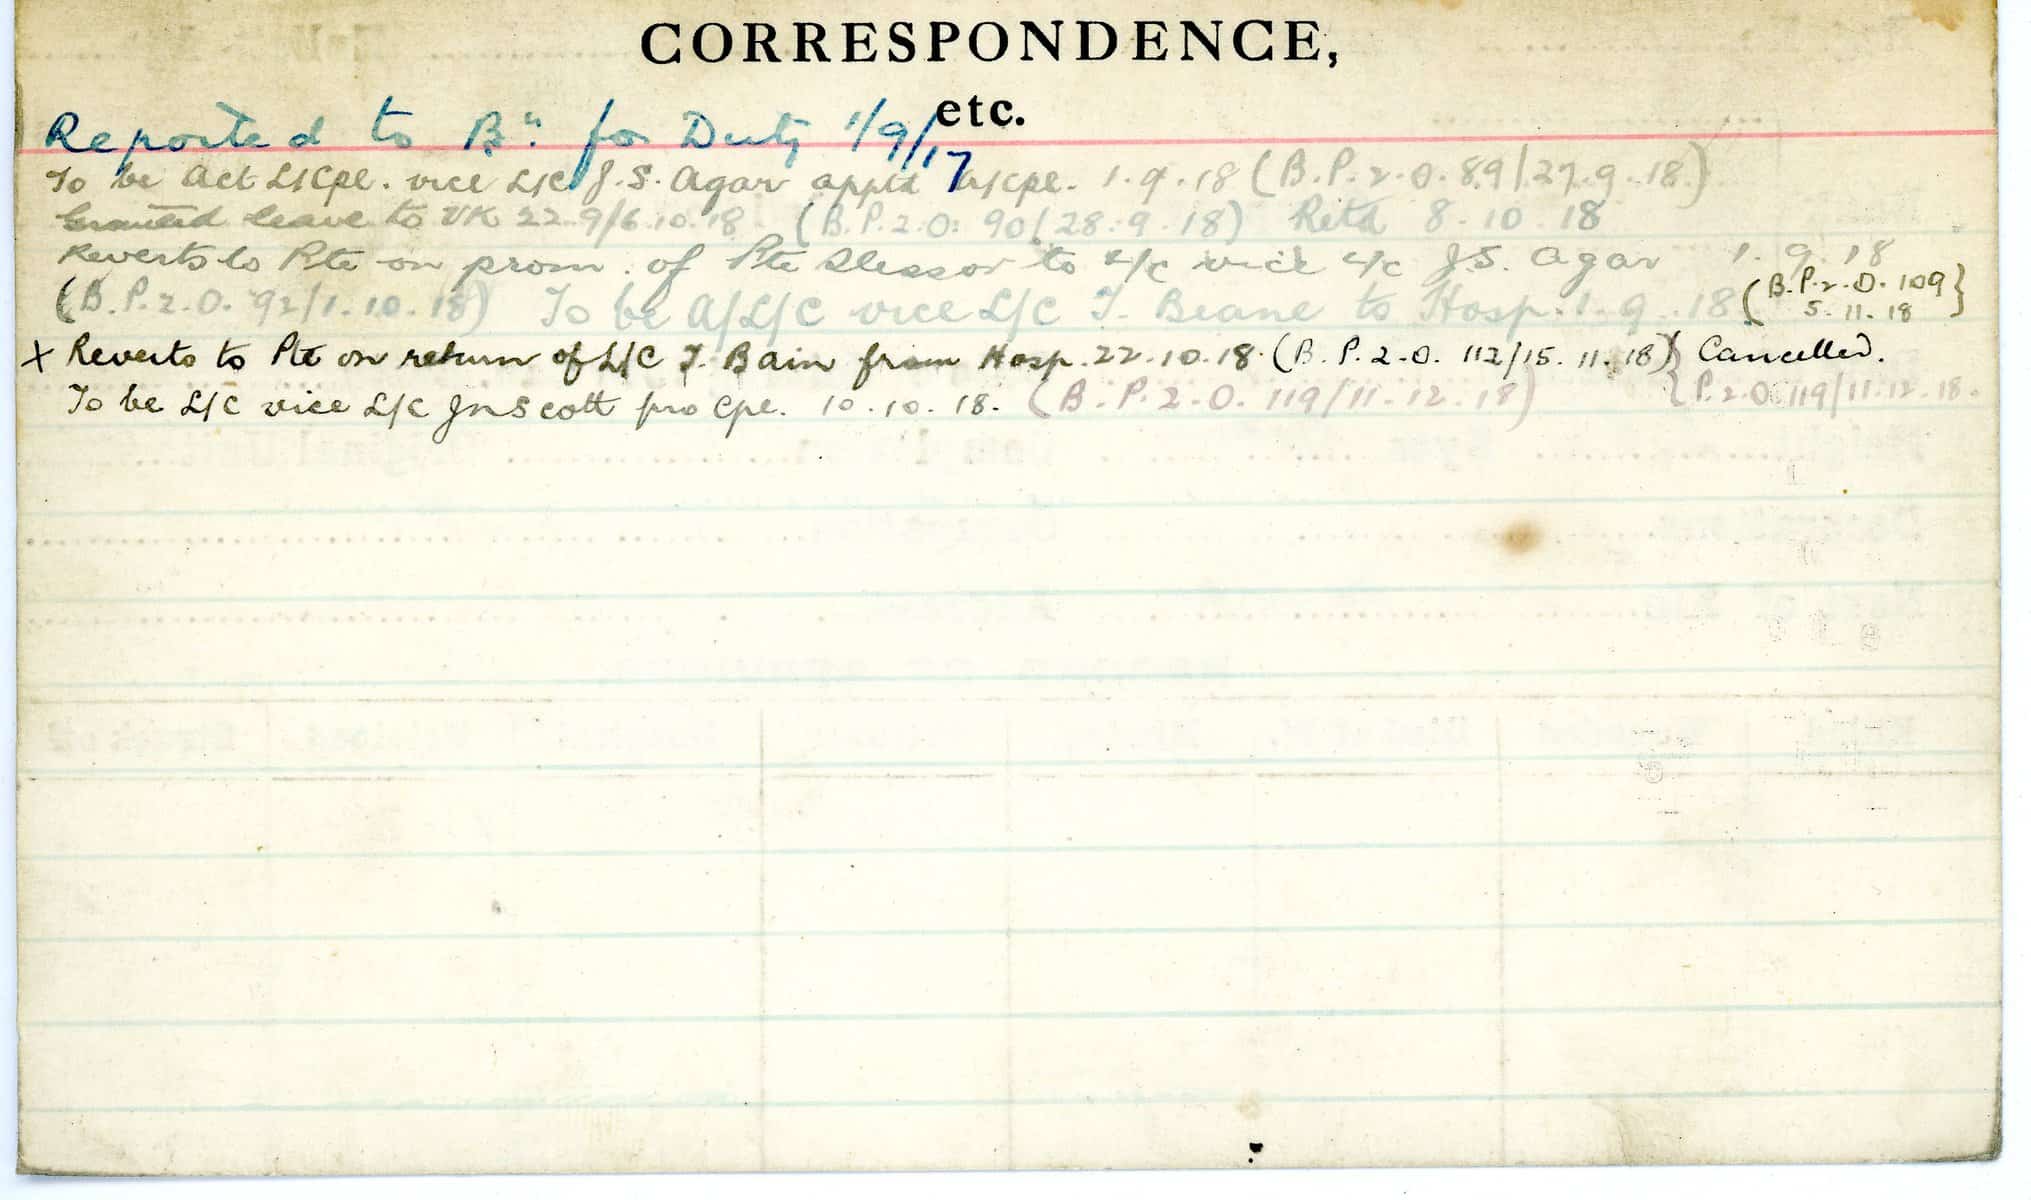 CORRESPONDENCE,
etc.
Reported to Bn for Duty 1/9/17
To be Act L/Cpl. vice L/C J. S. Agar apptd A/Cpl. 1.9.18 (B.P.2.O.89/27.9.18)
Granted leave to UK 22.9/6.10.18 (B.P.2.O: 90/28.9.18) Retd 8.10.18
Reverts to Pte on prom. of Pte Slessor to L/C vice L/C J.S. Agar 1.9.18
(B.P.2.O. 92/1.10.18) To be A/L/C vice L/C T. Beane to Hosp. 1.9.18 (B.P.2.O. 109
5.11.18)
X Reverts to Pte on return of L/C T. Bain from Hosp. 22.10.18. (B.P.2.O. 112/15.11.18) } Cancelled.
To be L/C vice L/C Jn Scott pro Cpl. 10.10.18. (B.P.2.O. 119/11.12.18) { P.2.O. 119/11.12.18.